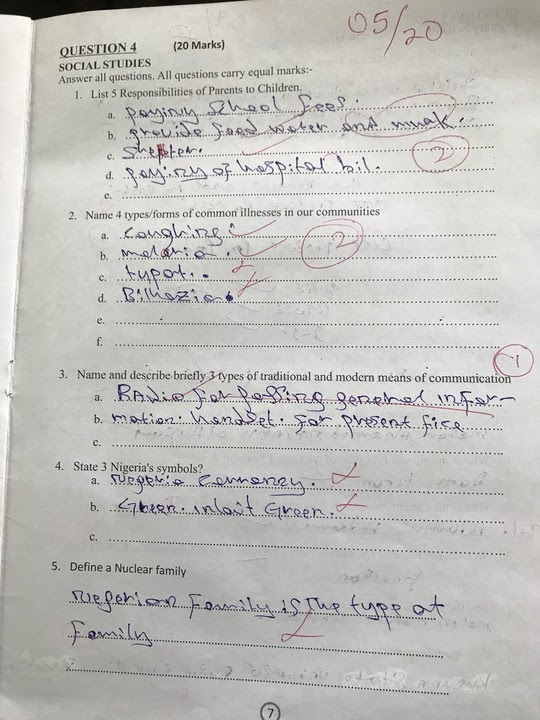 05/20
QUESTION 4 (20 Marks)
SOCIAL STUDIES
Answer all questions. All questions carry equal marks:-
1. List 5 Responsibilities of Parents to Children.
a. paying School fees.
b. provide food water and
c. Shelter.
d. paying of hospital bil.
2
e.
2. Name 4 types/forms of common illnesses in our communities
a. Coughing
b. malaria
2
c. typot
d. Bilhazia
e.
f.
1
3. Name and describe briefly 3 types of traditional and modern means of communication
a. RAdio for passing general infor-
b. mation. handset. for present
c.
4. State 3 Nigeria's symbols?
a. Negeria
b. Green. Green.
c.
5. Define a Nuclear family
Negerian Family is The type at
family
7